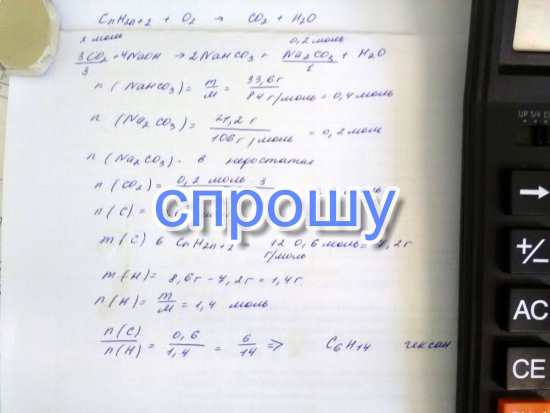 CnH2n+2 + O2 → CO2 + H2O
x моль 0,2 моль
3CO2 + 4NaOH → 2NaHCO3 + Na2CO3 + H2O
3 1
n (NaHCO3) = m/M = 33,6г / 84 г/моль = 0,4 моль
n (Na2CO3) = 21,2 г / 106 г/моль = 0,2 моль
n (Na2CO3) - в недостатке
n (CO2) = 0,2 моль · 3
спрошу
n (C) =
m (C) в CnH2n+2 12 г/моль 0,6 моль = 7,2г
m (H) = 8,6г - 7,2г = 1,4г.
n (H) = m/M = 1,4 моль.
n(C)/n(H) = 0,6/1,4 = 6/14 => C6H14 гексан
UP 5/4
→
+/−
AC
CE